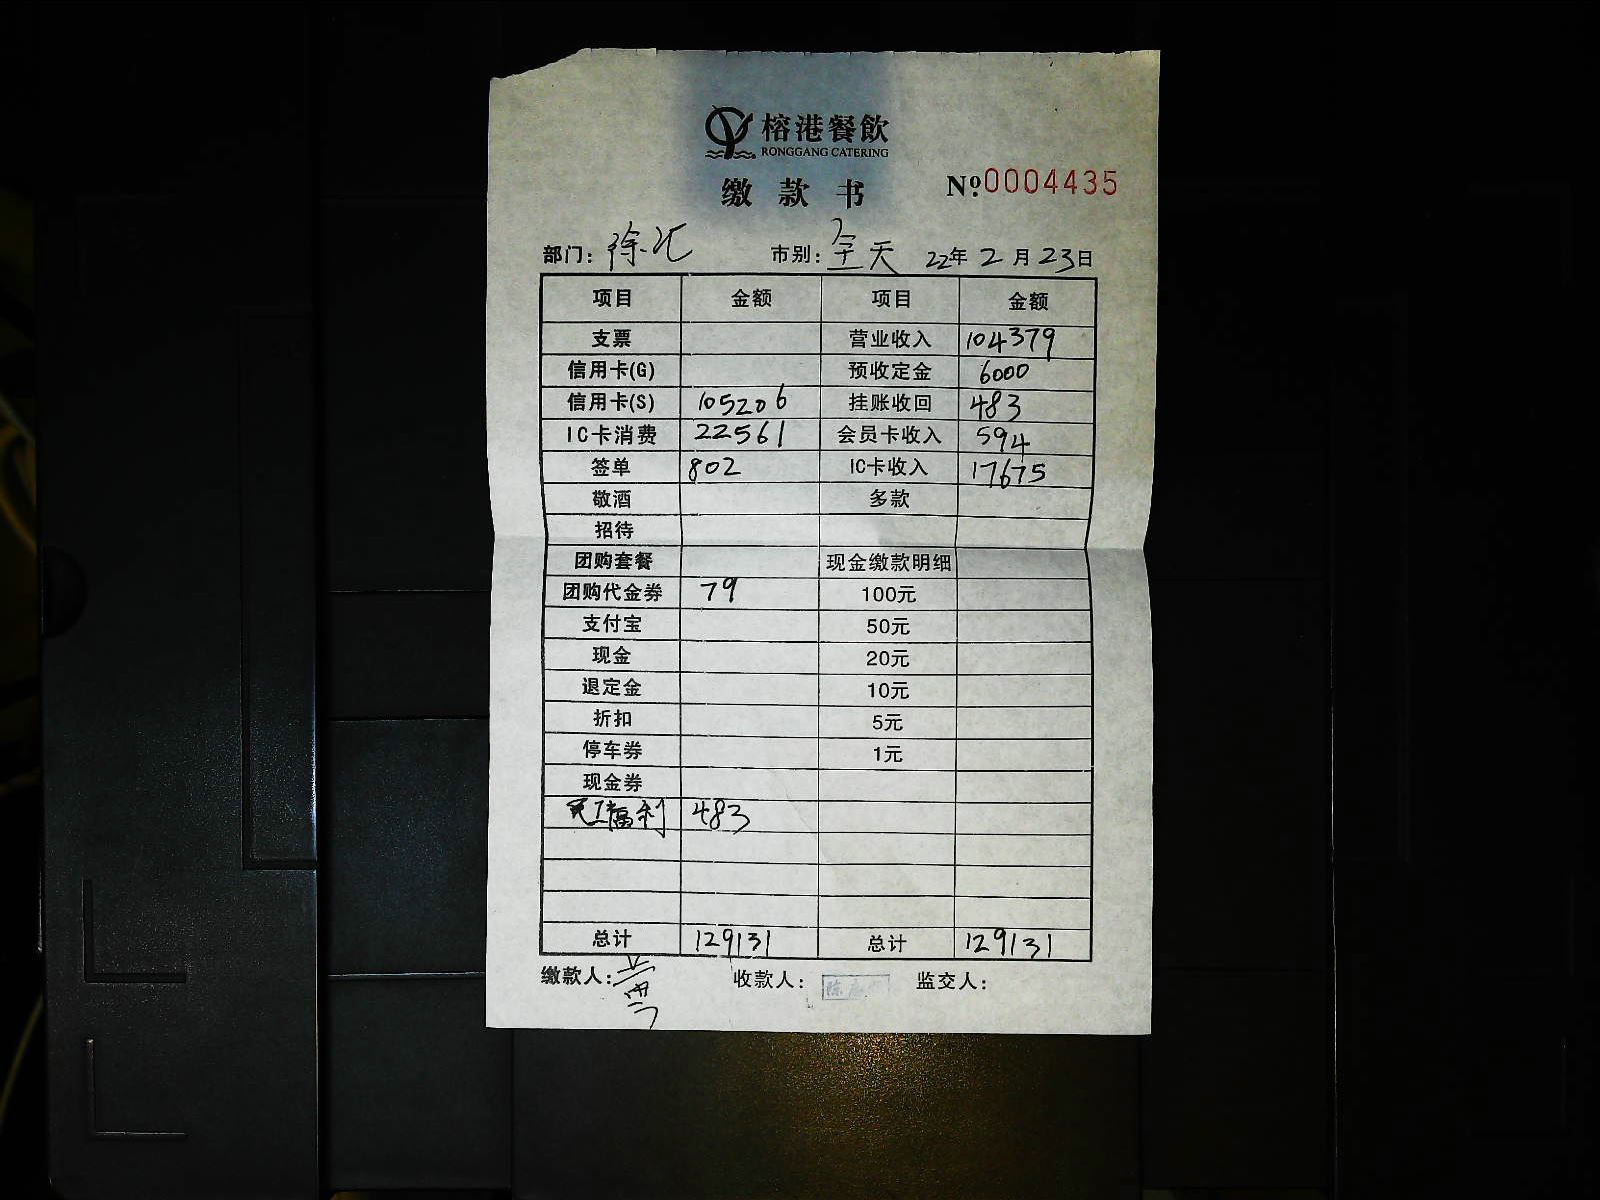 榕港餐飲
RONGGANG CATERING
缴款书 №0004435
部门：徐汇 市别：全天 22年2月23日
项目 金额 项目 金额
支票 营业收入 104379
信用卡(G) 预收定金 6000
信用卡(S) 105206 挂账收回 483
IC卡消费 22561 会员卡收入 594
签单 802 IC卡收入 17675
敬酒 多款
招待
团购套餐 现金缴款明细
团购代金券 79 100元
支付宝 50元
现金 20元
退定金 10元
折扣 5元
停车券 1元
现金券
福利 483
总计 129131 总计 129131
缴款人： 收款人： 监交人：